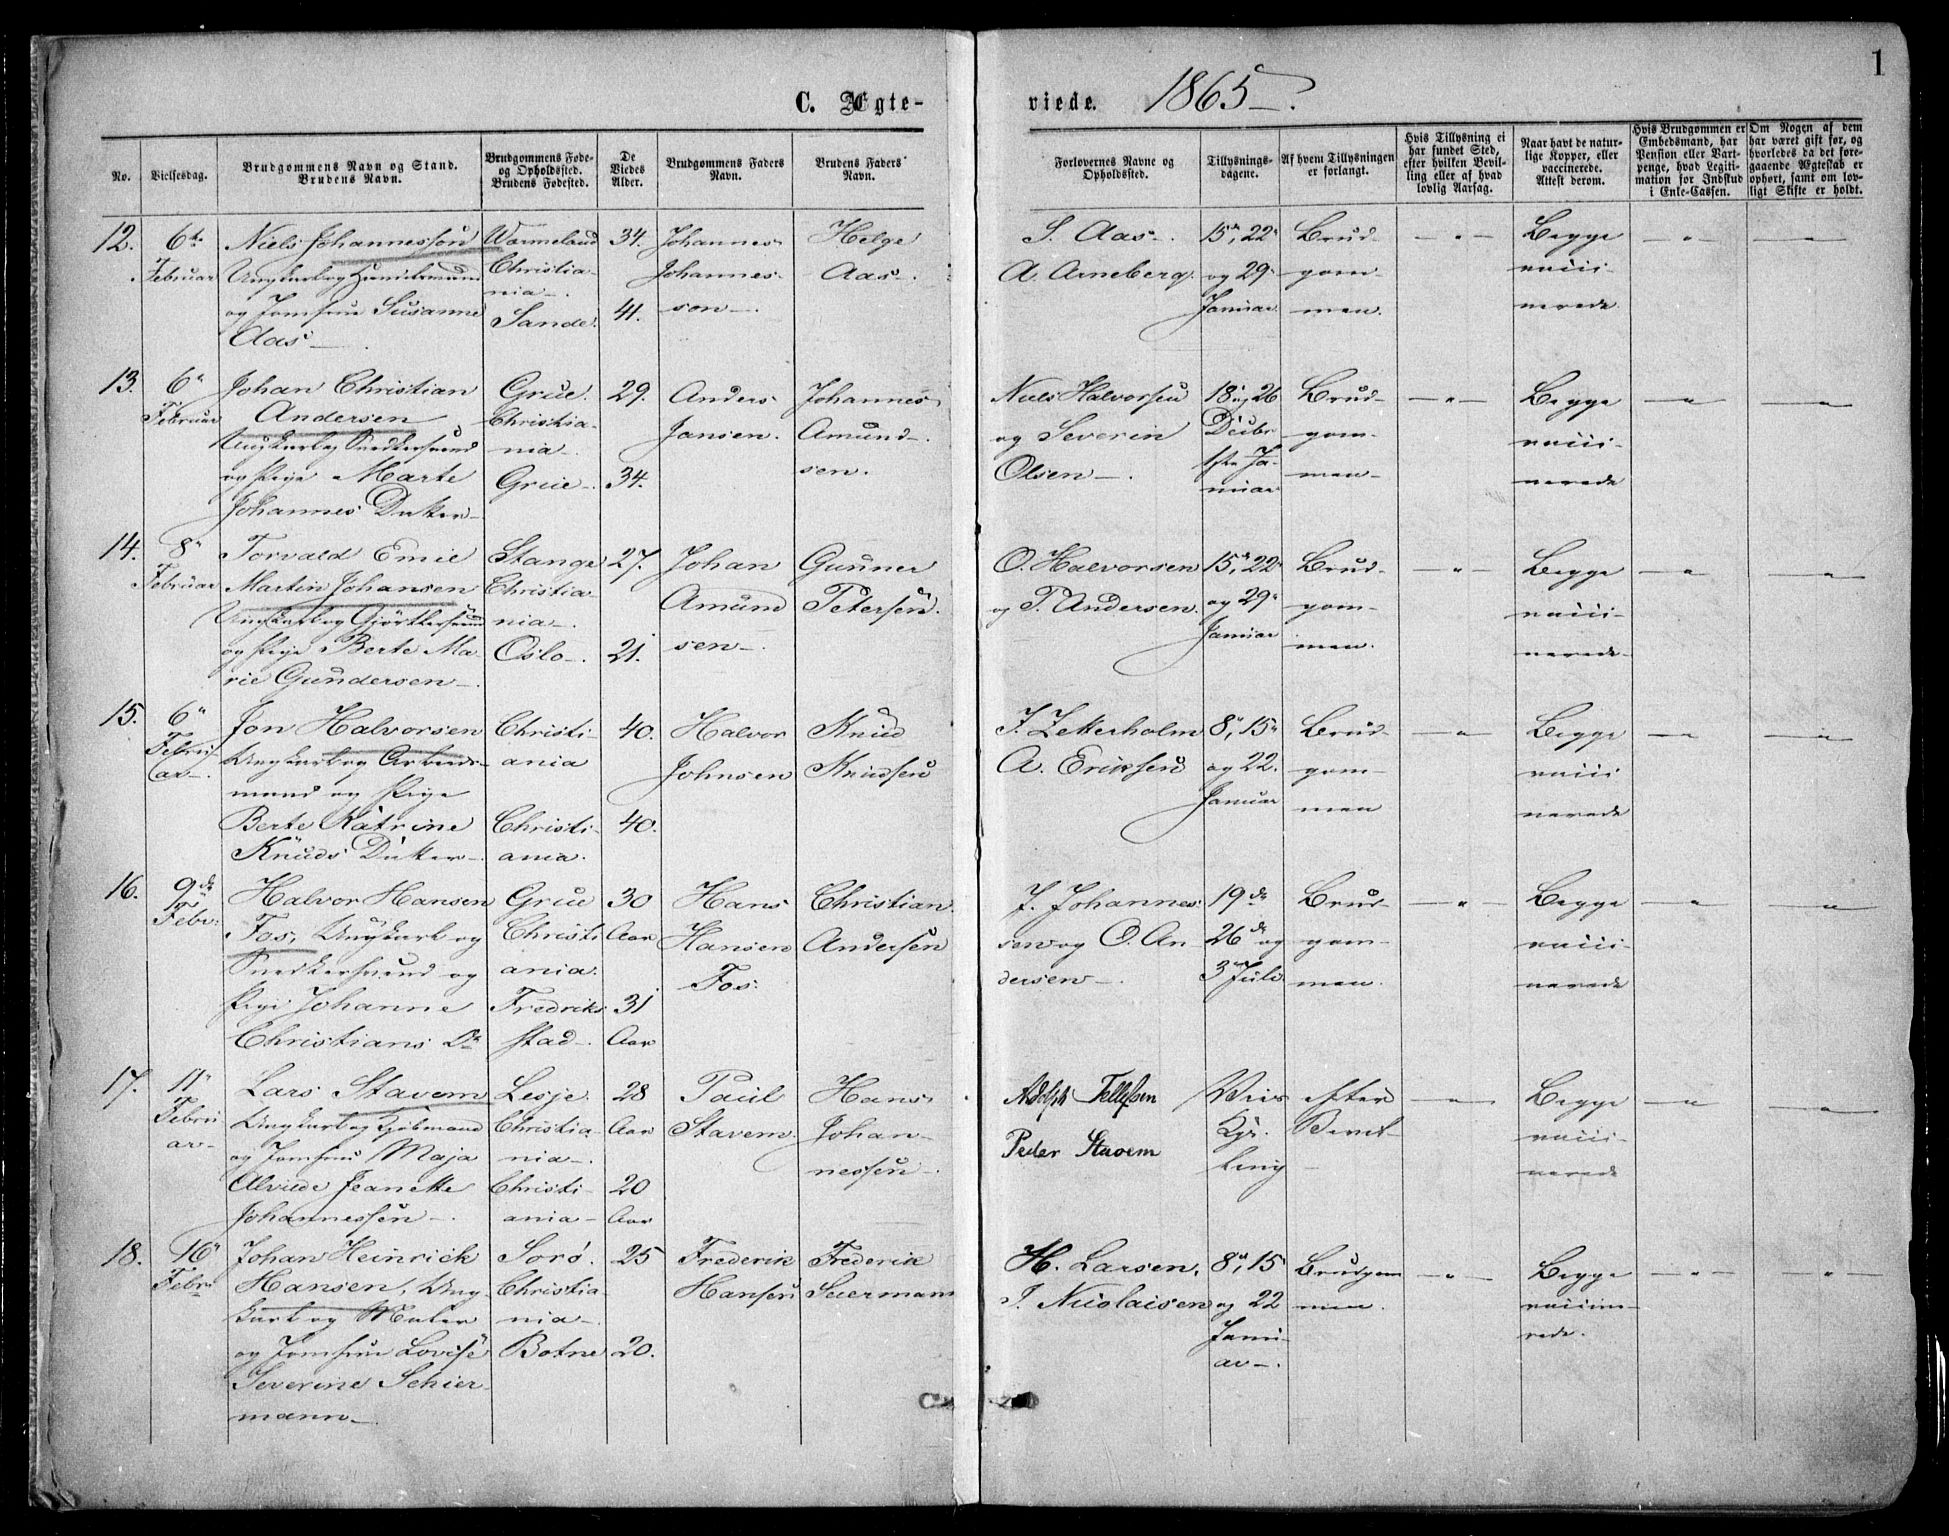 1
C. Ægte-
viede. 1865
No.
Vielsesdag.
Brudgommens Navn og Stand.
Brudens Navn.
Brudgommens Føde-
og Opholdssted.
Brudens Fødested.
De
Viedes
Alder.
Brudgommens Faders
Navn.
Brudens Faders
Navn.
Forlovernes Navne og
Opholdssted.
Tillysnings-
dagene.
Af hvem Tillysningen
er forlangt.
Hvis Tillysning ei
har fundet Sted,
efter hvilken Bevil-
ling eller af hvad
lovlig Aarsag.
Naar havt de natur-
lige Kopper, eller
vaccinerede.
Attest derom.
Hvis Brudgommen er
Embedsmand, har
Pension eller Vart-
penge, hvad Legiti-
mation for Indskud
i Enke-Cassen.
Om Nogen af dem
har været gift før, og
hvorledes da det fore-
gaaende Ægteskab er
ophørt, samt om lov-
ligt Skifte er holdt.
12.
6te
Februar
Niels Johannesson
Ungkarl og
og Jomfrue Susanne
Aas
Wærmeland
Christia-
nia
Sande
34.
41.
Johannes
Johannes
son
Helge
Aas
S. Aas
A. Arneberg
15de, 22
og 29
Januar
Brud-
gom-
men.
Begge
vacci-
nerede
13.
6
Februar
Johan Christian
Andersen
Ungkarl og Snedkersvend
og Pige Marte
Johannes Datter
Grue
Christia-
nia
Grue
29.
34.
Anders
Jansen.
Johannes
Amund-
sen.
Niels Halvorsen
og Severin
Olsen
18 og 26
Decbr
1ste Ja-
nuar
Brud-
gom-
men
Begge
vacci-
nerede
14.
8
Februar
Torvald Emil
Martin Johansen
Ungkarl og Gjørtlersvend
og Pige Berte Ma-
rie Gundersen
Stange
Christia-
nia
Oslo
27.
21.
Johan
Amund
sen
Gunner
Petersen.
O. Halvorsen
og P. Andersen.
15de, 22
og 29
Januar
Brud-
gom-
men.
Begge
vacci-
nerede
15.
6
Februar
ar
Jon Halvorsen
Ungkarl og Arbeids-
mand og Pige
Berte Katrine
Knuds Datter
Christi
ania
Christi-
ania.
40.
40.
Halvor
Johnsen
Knud
Knudsen
J. Zetterholm
A. Eriksen
8, 15
og 22.
Januar
Brud-
gom-
men
Begge
vacci
nerede
16.
9de
Febr:
Halvor Hansen
Fos, Ungkarl og
Snedkersvend og
Pige Johanne
Christians Dr
Grue
Christi
ania.
Fredriks
stad
30
Aar
31
Aar
Hans
Hansen
Fos:
Christian
Andersen
J. Johannes
sen og O. An
dersen
19de
26de og
3 Juli
Brud-
gom-
men.
Begge
vacci-
nerede
17.
11
Febru
ar
Lars Stavem
Ungkarl og Kjøbmand
og Jomfru Maja
Alvilde Jeanette
Johannessen
Lesje
Christia-
nia
Christi-
ania
28
Aar
20
Aar
Paul
Stavem.
Hans
Johan-
nessen
Adolph Tellefsen
Peder Stavem
Viet
efter
Kgl.
Bevil-
ling
Begge
vacci-
nerede
18.
16
Febr
Johan Heinrick
Hansen, Ung-
karl og Maler
og Jomfrue Lovise
Severine Schier-
mann
Sorø.
Christia-
nia
Botne
25
20.
Frederik
Hansen
Frederik
H. Larsen,
J. Nicolaisen
8, 15
og 22
Janu-
ar
Brudgom
men.
Begge
vaccine-
rede.